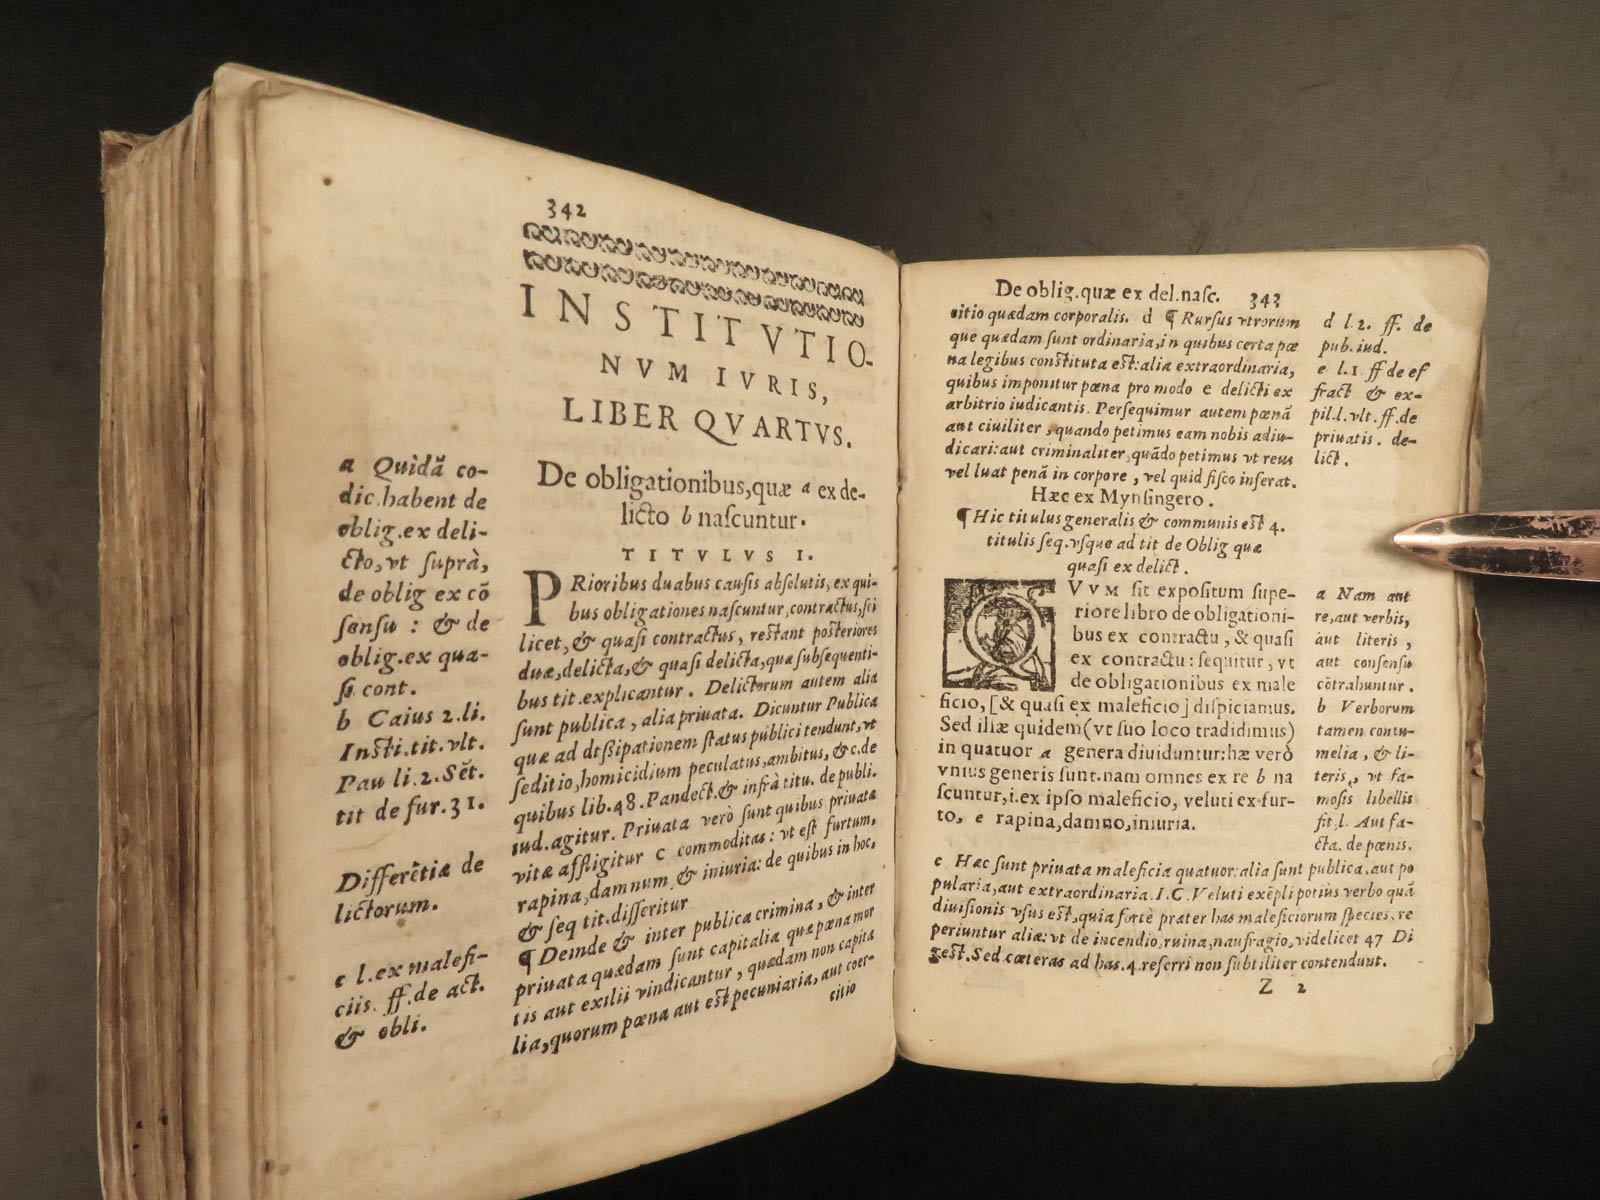 342
INSTITVTIO-
NVM IVRIS,
LIBER QVARTVS.
De obligationibus, quæ a ex de-
licto b naſcuntur.
TITVLVS I.
PRioribus duabus cauſis abſolutis, ex qui-
bus obligationes naſcuntur, contractus, ſci
licet, & quaſi contractus, reſtant poſteriores
duæ, delicta, & quaſi delicta, quæ subſequenti-
bus tit. explicantur. Delictorum autem alia
ſunt publica, alia priuata. Dicuntur Publica
quæ ad dißipationem ſtatus publici tendunt, vt
ſeditio, homicidium peculatus, ambitus, &c. de
quibus lib. 48. Pandect. & infrà titu. de publi.
iud. agitur. Priuata verò ſunt quibus priuata
vitæ affligitur c commoditas: vt eſt furtum,
rapina, damnum & iniuria: de quibus in hoc,
& ſeq tit. diſſeritur
¶ Deinde & inter publica crimina, & inter
priuata quædam ſunt capitalia quæ pœna mor
tis aut exilii vindicantur, quædam non capita
lia, quorum pœna aut eſt pecuniaria, aut coer-
citio
a Quidã co-
dic. habent de
oblig. ex deli-
cto, vt ſuprà,
de oblig ex cõ
ſenſu : & de
oblig. ex qua-
ſi cont.
b Caius 2. li.
Inſti. tit. vlt.
Pau li. 2. Sēt.
tit de fur. 31.
Differētiæ de
lictorum.
c l. ex malefi-
ciis. ff. de act.
& obli.
De oblig. quæ ex del. naſc. 343
citio quædam corporalis. d ¶ Rurſus vtrorum
que quædam ſunt ordinaria, in quibus certa pœ
na legibus conſtituta eſt: alia extraordinaria,
quibus imponitur pœna pro modo e delicti ex
arbitrio iudicantis. Perſequimur autem pœnã
aut ciuiliter, quando petimus eam nobis adiu-
dicari: aut criminaliter, quãdo petimus vt reus
vel luat penã in corpore, vel quid fiſco inferat.
Hæc ex Mynſingero.
¶ Hic titulus generalis & communis eſt 4.
titulis ſeq. vſque ad tit de Oblig quæ
quaſi ex delict.
QVVM ſit expoſitum ſupe-
riore libro de obligationi-
bus ex contractu, & quaſi
ex contractu: ſequitur, vt
de obligationibus ex male
ficio, [& quaſi ex maleficio] diſpiciamus.
Sed illæ quidem (vt ſuo loco tradidimus)
in quatuor a genera diuiduntur: hæ verò
vnius generis ſunt. nam omnes ex re b na
ſcuntur, i. ex ipſo maleficio, veluti ex fur-
to, c rapina, damno, iniuria.
c Hæc ſunt priuata maleficia quatuor: alia ſunt publica, aut po
pularia, aut extraordinaria. I.C. Veluti exēpli potius verbo quã
diuiſionis vſus eſt, quia fortè præter has maleficiorum ſpecies, re
periuntur aliæ: vt de incendio, ruina, naufragio, videlicet 47 Di
geſt. Sed cæteras ad has. 4. referri non ſubtiliter contendunt.
Z 2
d l. 2. ff. de
pub. iud.
e l. 1. ff de ef
fract & ex-
pil. l. vlt. ff. de
priuatis. de-
lict.
a Nam aut
re, aut verbis,
aut literis,
aut conſenſu
cõtrahuntur.
b Verborum
tamen contu-
melia, & li-
teris, vt fa-
moſis libellis
fit, l. Aut fa-
cta. de pœnis.